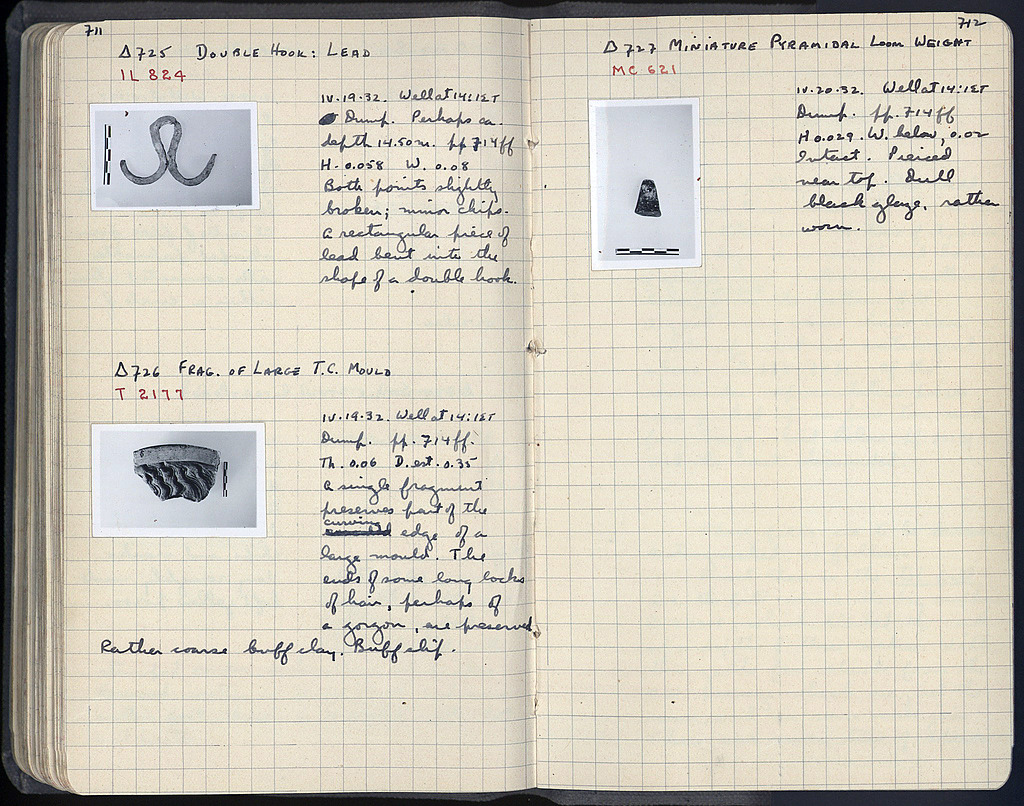 711
Δ725 DOUBLE HOOK: LEAD
IL 824
IV.19.32. Well at 14:1ΣΤ
Dump. Perhaps ca.
depth 14.50m. pp 714ff
H. 0.058 W. 0.08
Both points slightly
broken; minor chips.
A rectangular piece of
lead bent into the
shape of a double hook.
Δ726 FRAG. OF LARGE T.C. MOULD
T 2177
IV.19.32. Well at 14:1ΣΤ
Dump. pp. 714ff.
Th. 0.06 D. est. 0.35
A single fragment
preserves part of the
curving
edge of a
large mould. The
ends of some long locks
of hair, perhaps of
a gorgon, are preserved.
Rather coarse buff clay. Buff slip.
712
Δ727 MINIATURE PYRAMIDAL LOOM WEIGHT
MC 621
IV.20.32. Well at 14:1ΣΤ
Dump. pp. 714ff
H 0.029. W. below, 0.02
Intact. Pierced
near top. Dull
black glaze, rather
worn.